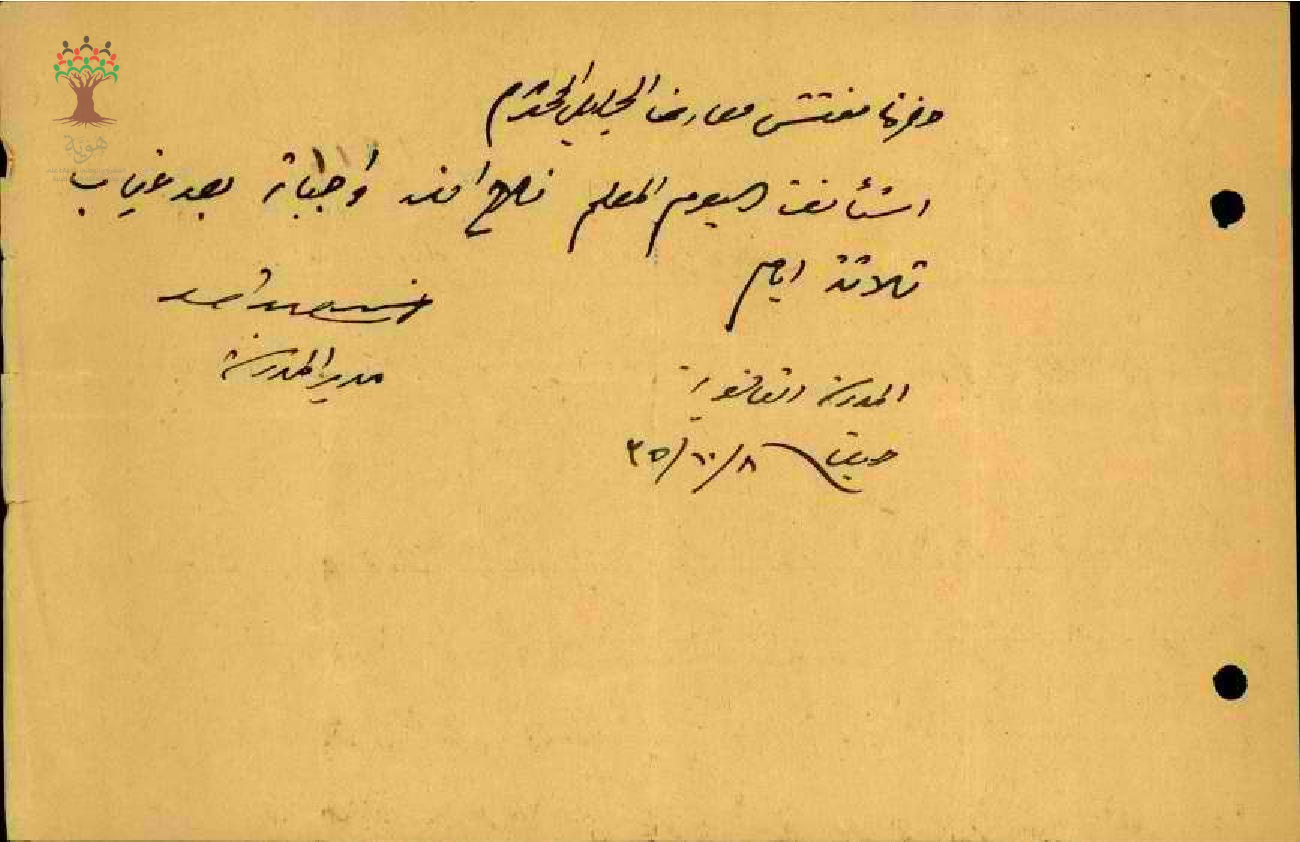 هوية
حضرة مفتش معارف الجليل المحترم
استأنف اليوم المعلم افندي واجباته بعد غياب
ثلاثة ايام
مدير المدرسة
المدرسة الثانوية
٣٥/١٠/٨